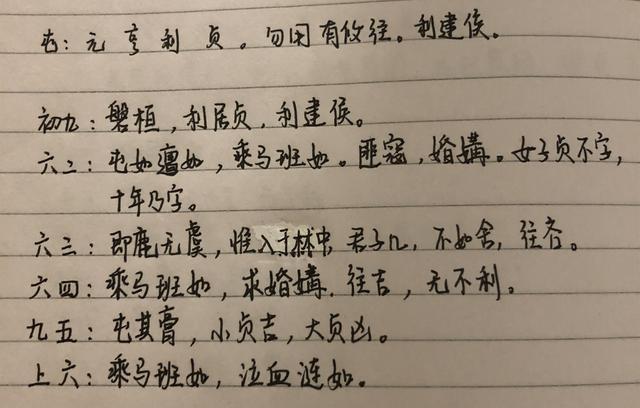 屯：元亨利贞。勿用有攸往。利建侯。
初九：磐桓，利居贞，利建侯。
六二：屯如邅如，乘马班如。匪寇，婚媾。女子贞不字，
十年乃字。
六三：即鹿无虞，惟入于林中，君子几，不如舍，往吝。
六四：乘马班如，求婚媾，往吉，无不利。
九五：屯其膏，小贞吉，大贞凶。
上六：乘马班如，泣血涟如。